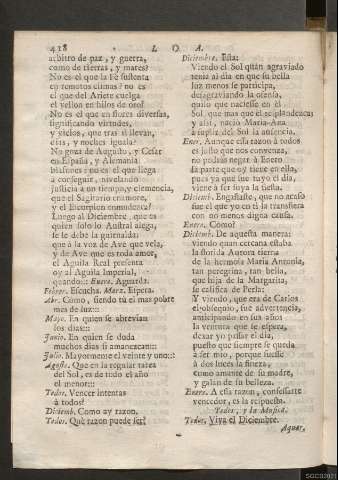 418 L O A.
arbitro de paz, y guerra,
como de tierras, y mares?
No es el que la Fè sustenta
en remotos climas? no es
el que del Aries cuelga
el vellon en hilos de oro?
No es el que en flores diversas,
significando virtudes,
y vicios, que tras sì llevan,
dias, y noches iguala?
No goza de Augusto, y Cesar
en España, y Alemania
blasones? no es el que llega
à conseguir, nivelando
justicia à un tiempo, y clemencia,
que el Sagitario enmiende,
y el Escorpion comedezca?
Luego al Diciembre, que es
quien solo lo Austral alega,
se le debe la guirnalda:
que à la voz de Ave que vela,
y de Ave que es toda amor,
el Aguila Real presenta
oy al Aguila Imperial,
quando::: Enero. Aguarda.
Febrer. Escucha. Marz. Espera.
Abr. Como, siendo tù el mas pobre
mes de luz:::
Mayo. En quien se abrevian
los dias:::
Junio. En quien se duda
muchos dias si amanecen:::
Julio. Mayormente el veinte y uno:::
Agosto. Que en la regular tarea
del Sol, es de todo el año
el menor:::
Todos. Vencer intentas
à todos?
Diciemb. Como ay razon.
Todos. Què razon puede ser?
Diciembre. Esta:
Viendo el Sol quàn agraviado
tenia al dia en que su bella
luz menos se participa,
desagraviando la ofensa,
quiso que naciesse en èl
Sol, que mas que èl resplandezca;
y assi, naciò Maria-Ana
à suplir del Sol la ausencia.
Ener. Aunque essa razon à todos
es justo que nos convenza,
no podràs negar à Enero
la parte que oy tiene en ella,
pues ya que fue tuyo el dia,
viene à ser suya la fiesta.
Diciemb. Engañaste, que no acaso
fue el que yo en ti la transfiera
con no menos digna causa.
Enero. Como?
Diciemb. De aquesta manera:
viendo quan cercana estaba
la florida Aurora tierna
de la hermosa Maria Antonia,
tan peregrina, tan bella,
que hija de la Margarita,
se califica de Perla:
Y viendo, que era de Carlos
el obsequio, fue advertencia,
anticipando en sus años
la ventura que se espera,
dexar yo passar el dia,
puesto que siempre se queda
à ser mio, porque fuesse
à dos luces la fineza,
como amante de su madre,
y galan de su belleza.
Enero. A essa razon, confessarte
vencedor, es la respuesta.
Todos, y la Musica.
Todos. Viva el Diciembre.
Agua,